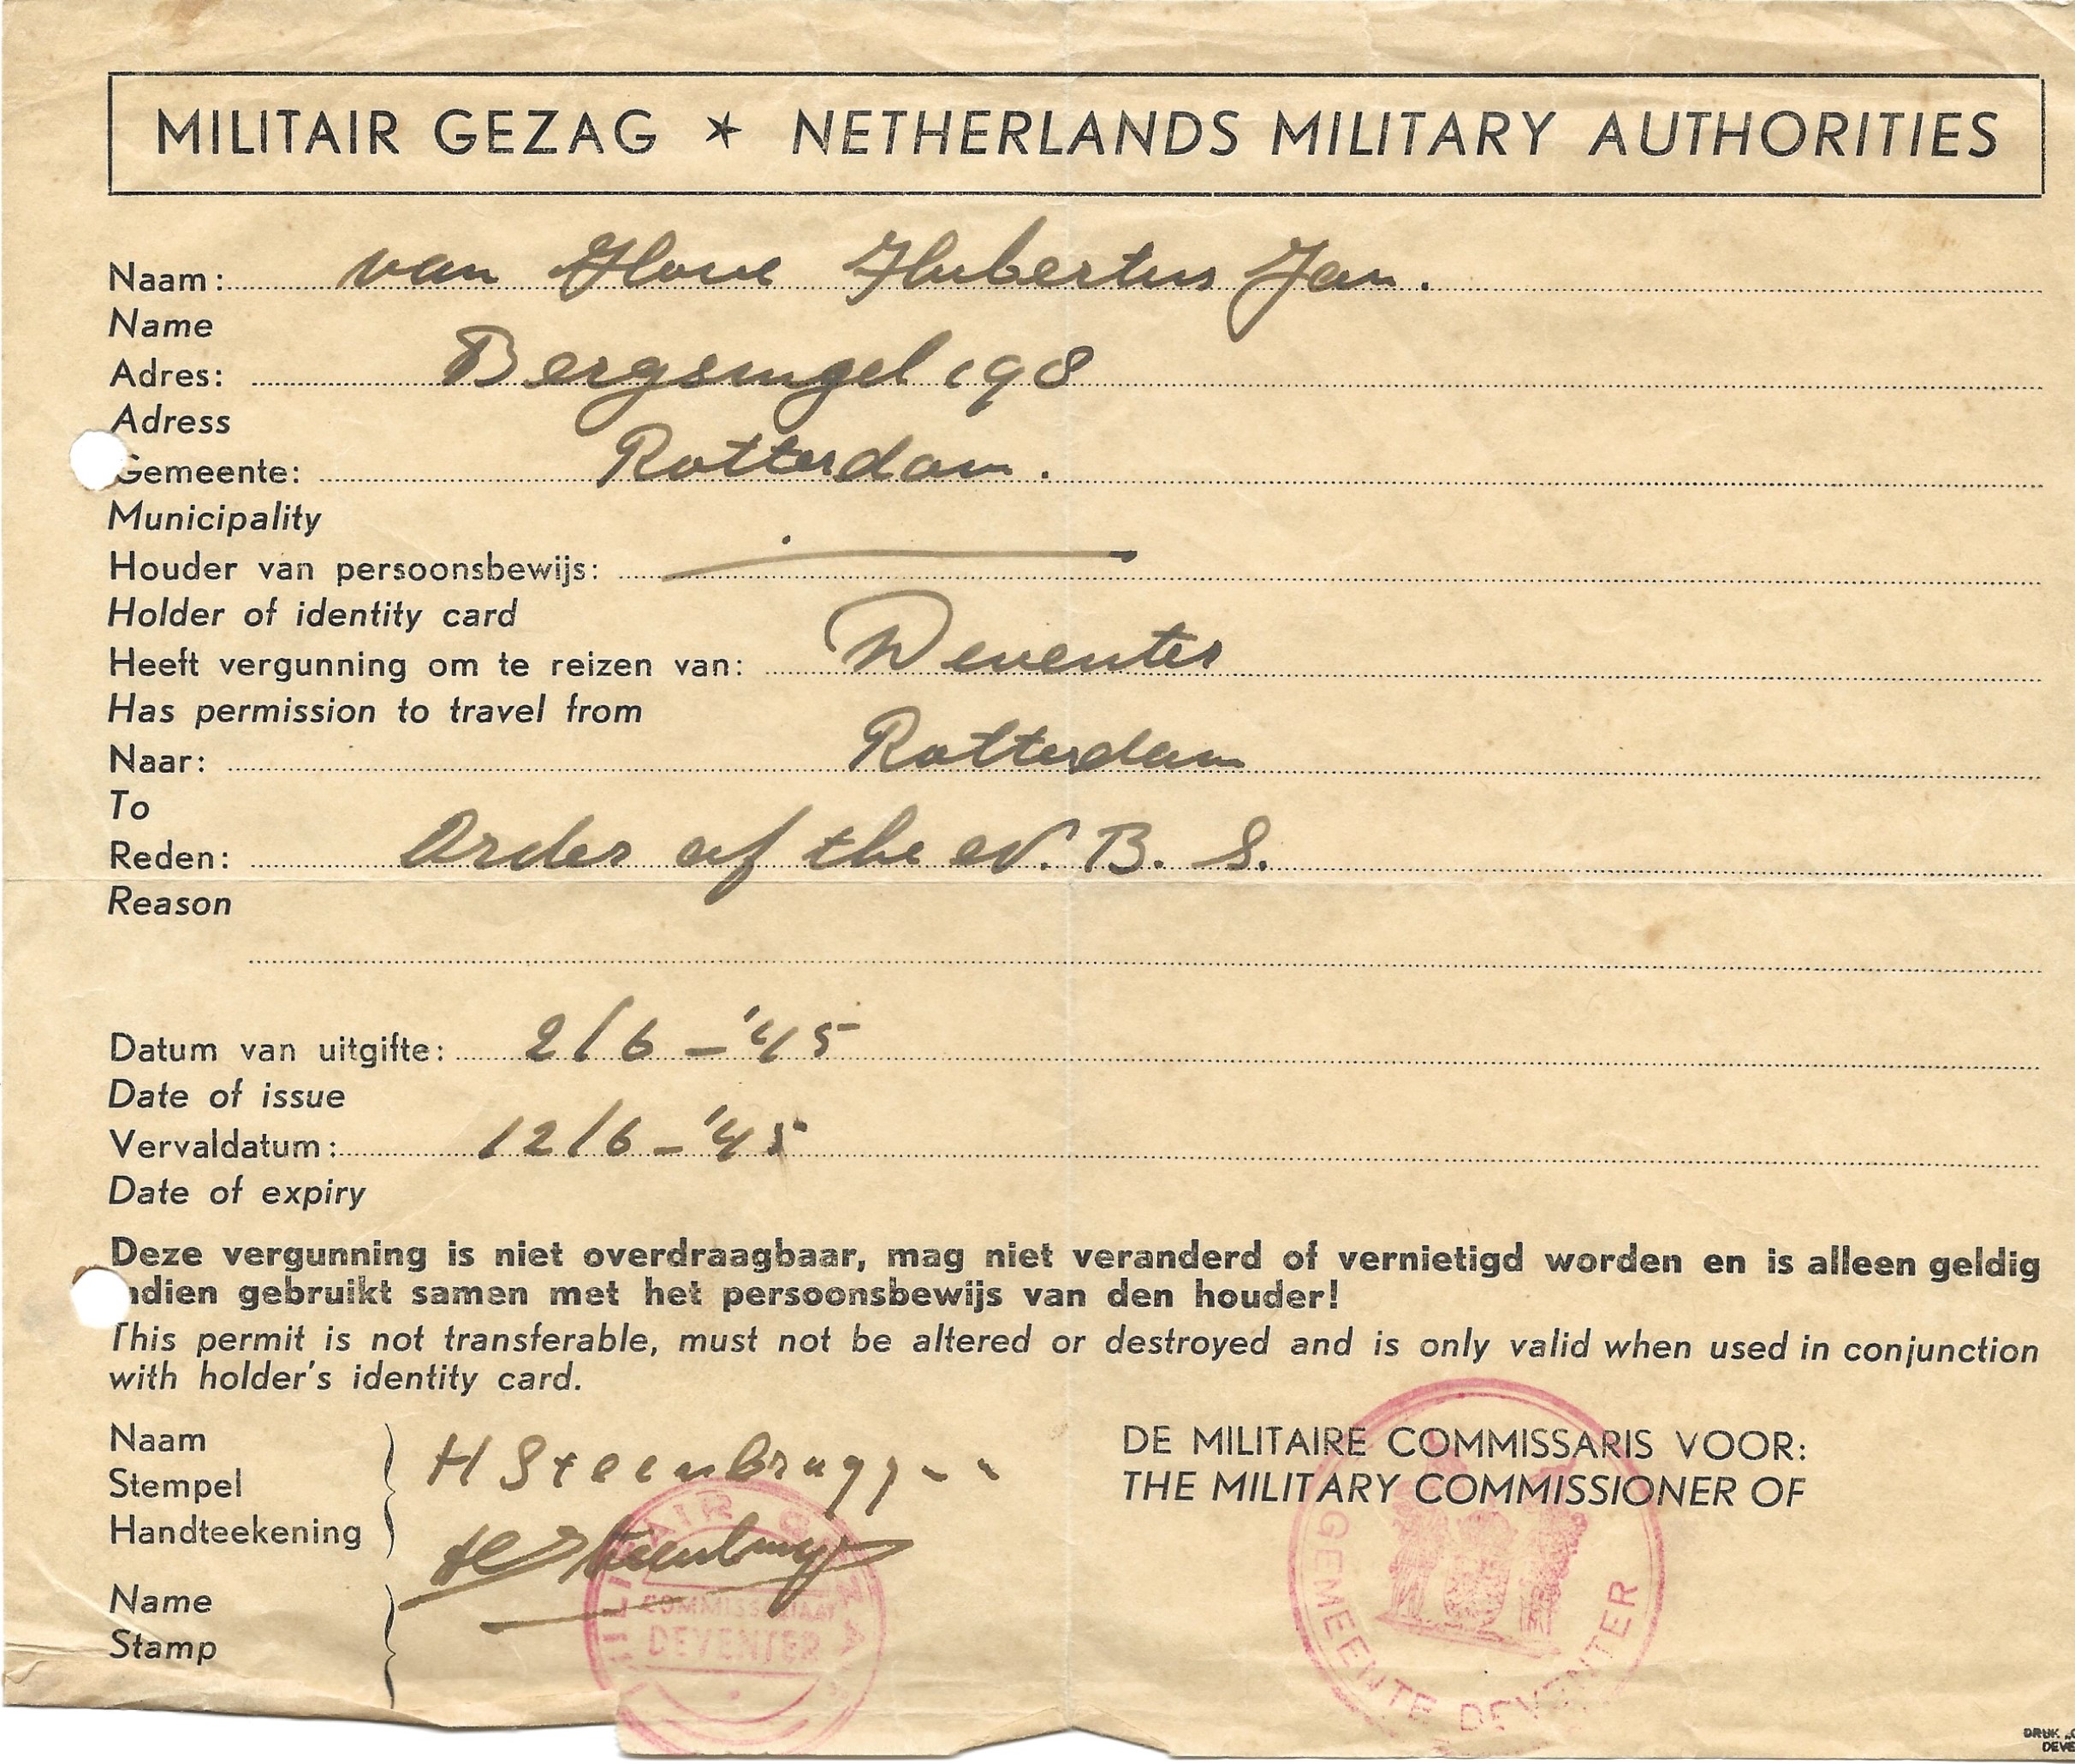 MILITAIR GEZAG ★ NETHERLANDS MILITARY AUTHORITIES
Naam: van Hove Hubertus Jan.
Name
Adres: Bergsingel 198
Adress
Gemeente: Rotterdam.
Municipality
Houder van persoonsbewijs:
Holder of identity card
Heeft vergunning om te reizen van: Deventer
Has permission to travel from
Naar: Rotterdam
To
Reden: Order of the N. B. S.
Reason
Datum van uitgifte: 2/6 – '45
Date of issue
Vervaldatum: 12/6 – '45
Date of expiry
Deze vergunning is niet overdraagbaar, mag niet veranderd of vernietigd worden en is alleen geldig
indien gebruikt samen met het persoonsbewijs van den houder!
This permit is not transferable, must not be altered or destroyed and is only valid when used in conjunction
with holder's identity card.
Naam
Stempel
Handteekening
H
Name
Stamp
MILITAIR GEZAG
COMMISSARIAAT
DEVENTER
DE MILITAIRE COMMISSARIS VOOR:
THE MILITARY COMMISSIONER OF
GEMEENTE DEVENTER
DRUK